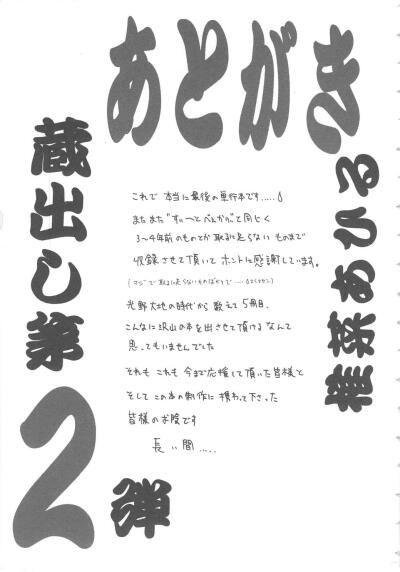 あとがき
蔵出し第2弾
椎菜あひる
これで 本当に最後の単行本です.....
またまた"すぃ〜とべぇかりぃ"と同じく
3〜4年前のものでか取るに足らないものまで
収録させて頂いて ホントに感謝しています。
(マジで取るに足らないものばかりで....スミマセン)
光野大地の時代から数えて5冊目、
こんなに沢山の本を出させて頂けるなんて
思ってもいませんでした
それも これも 今まで応援して頂いた皆様と
そして この本の制作に携わって下さった
皆様のお陰です
長い間.....